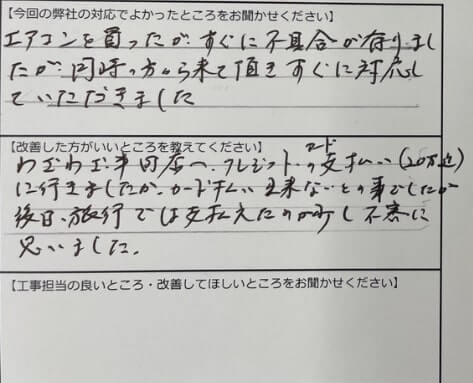 【今回の弊社の対応でよかったところをお聞かせください】
エアコンを買ったが、すぐに不具合が有りまし
たが、岡崎の方から来て頂きすぐに対応し
ていただきました
【改善した方がいいところを教えてください】
わざわざ店へ、クレジットカードの支払い(20万迄)
に行きましたが、カード払い出来ないとの事でしたが
後日、旅行では支払えたのが少し不審に
思いました。
【工事担当の良いところ・改善してほしいところをお聞かせください】